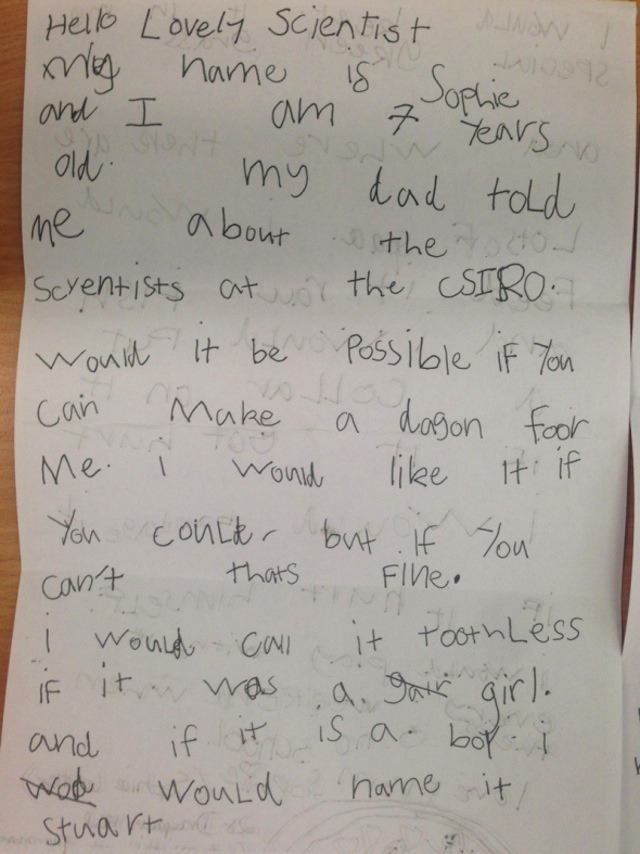 Hello Lovely Scientist
my name is Sophie
and I am 7 Years
old. my dad told
me about the
Scyentists at the CSIRO.
Would it be possible if You
can Make a dagon foor
Me. i would like it if
You could but if You
can't thats Fine.
i would call it toothLess
if it was a girl.
and if it is a boy i
would name it
Stuart